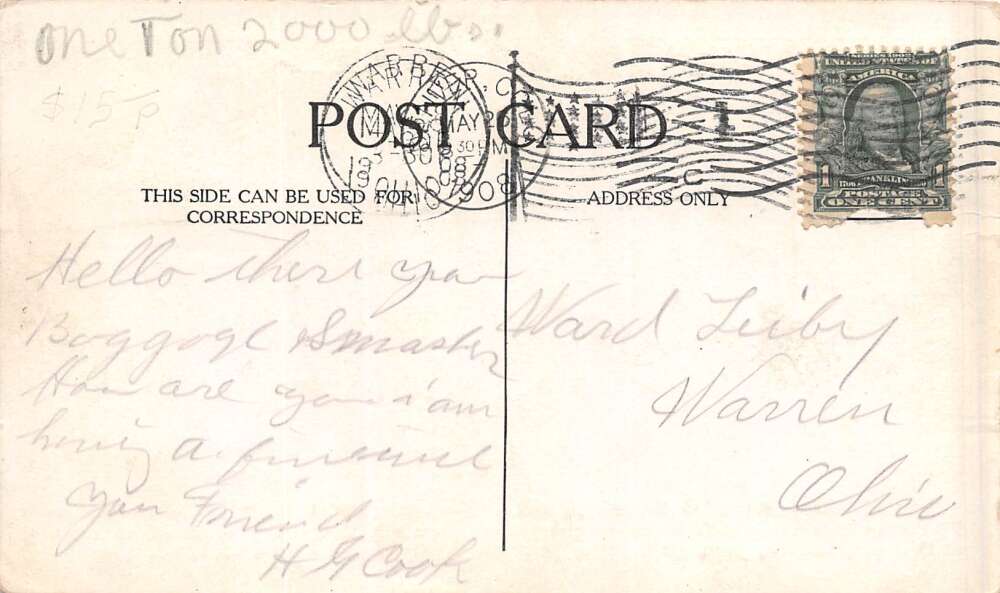 one Ton 2000 lbs.
$15
POST CARD
WARREN, OHIO
MAY
30 PM
1908
1
C
UNITED STATES OF
AMERICA
1706 FRANKLIN
1 POSTAGE 1
ONE CENT
THIS SIDE CAN BE USED FOR
CORRESPONDENCE
ADDRESS ONLY
Hello there you
Boggogl Smasher
How are you i am
hening a fine
you Friend
H G Cook
Ward Leiby
Warren
Ohio